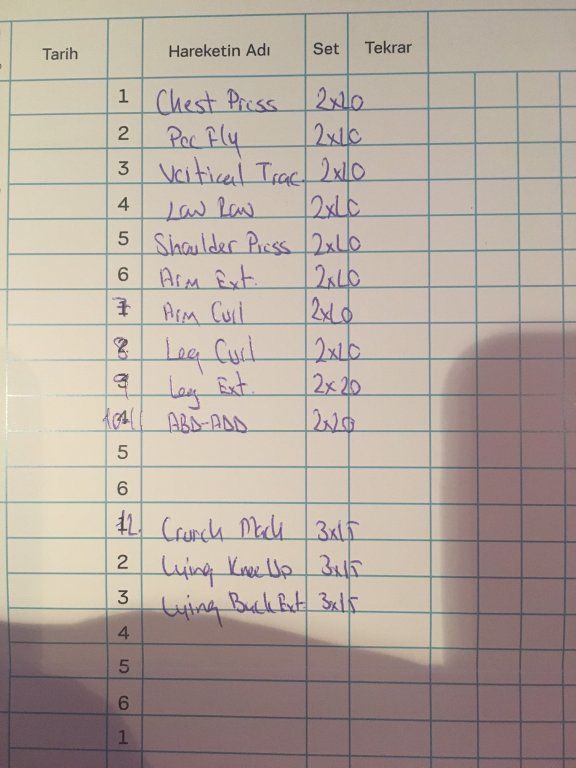 Tarih Hareketin Adı Set Tekrar
1 Chest Press 2x10
2 Pec Fly 2x10
3 Vertical Trac. 2x10
4 Law Raw 2x10
5 Shoulder Press 2x10
6 Arm Ext. 2x10
7 Arm Curl 2x10
8 Leg Curl 2x10
9 Leg Ext. 2x20
10-11 ABD-ADD 2x20
5
6
12. Crunch Mach 3x15
2 Lying Knee Up 3x15
3 Lying Back Ext 3x15
4
5
6
1